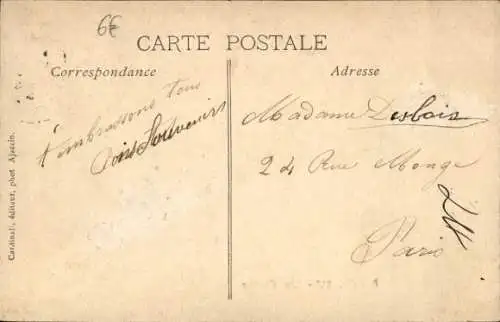 6€
CARTE POSTALE
Correspondance
t'embrassons tous
Bons Souvenirs
Adresse
Madame Desbois
24 Rue Monge
Paris
Cardinali, éditeur, phot. Ajaccio.